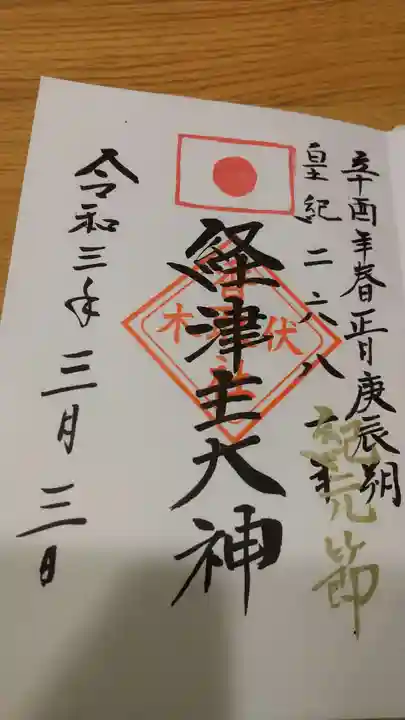 辛酉年春正月庚辰朔
皇紀二六八一年
紀元節
経津主大神
伏木香取神社
令和三年三月三日